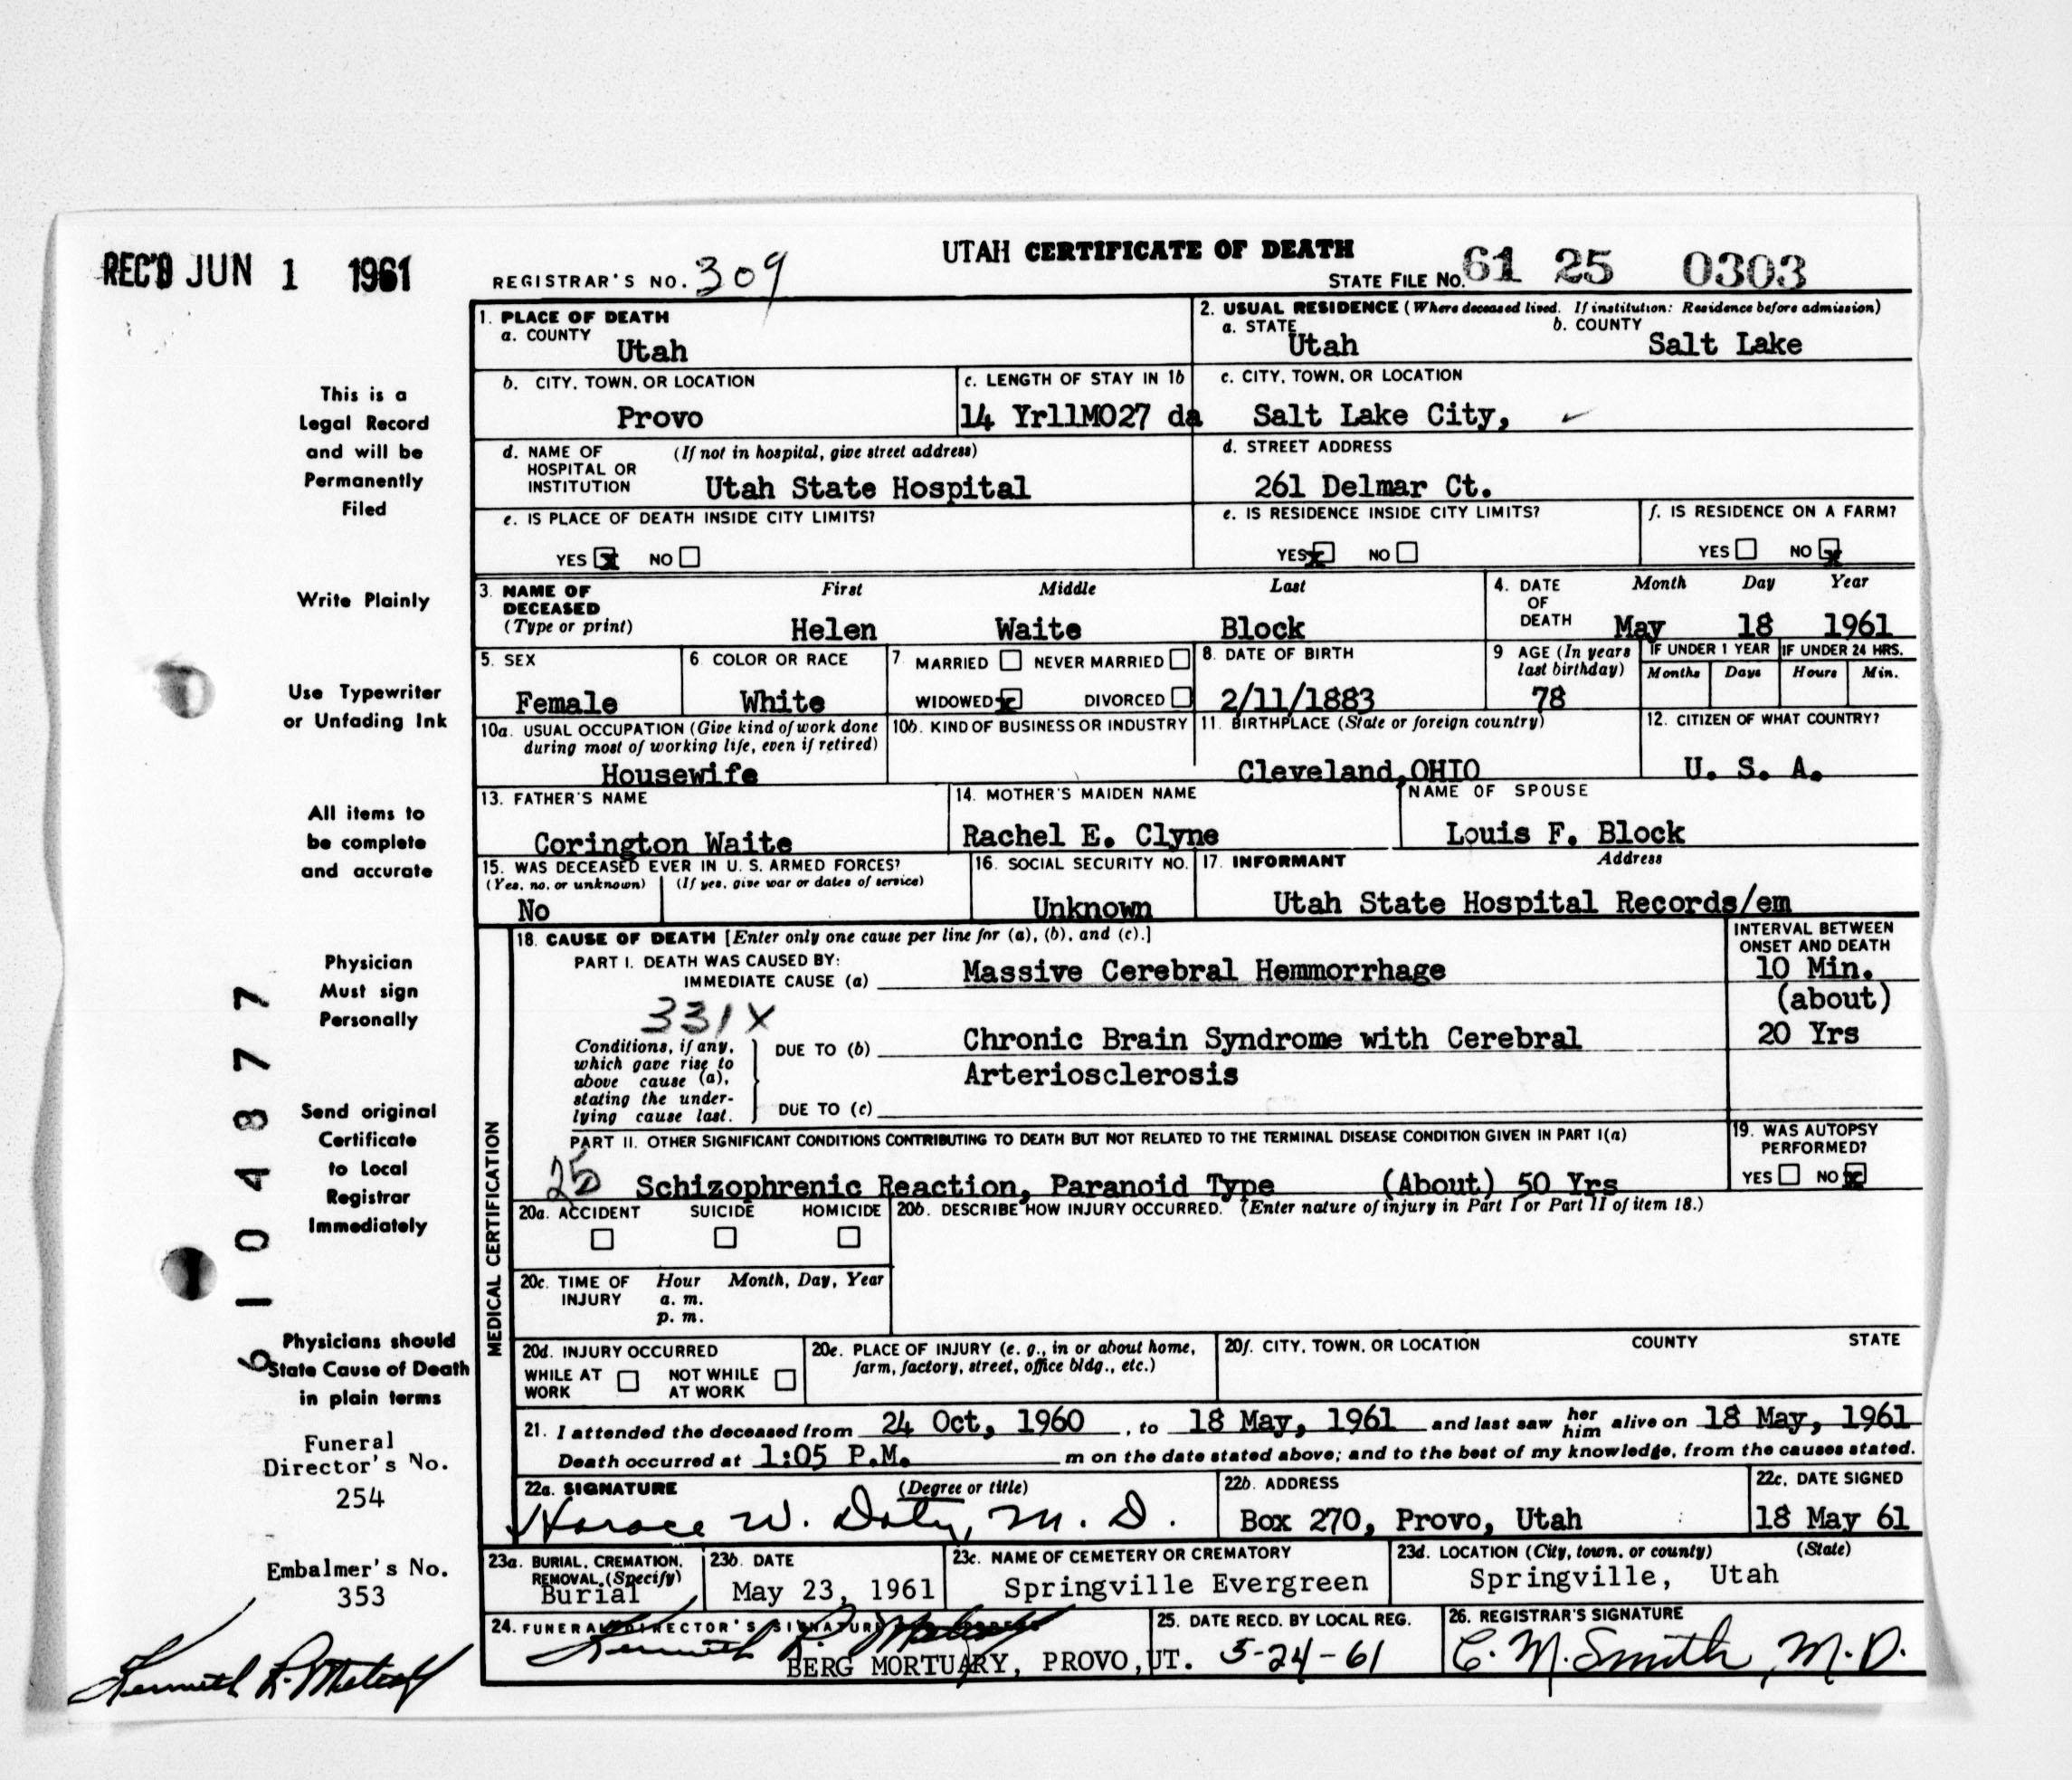 REC'D JUN 1 1961
UTAH CERTIFICATE OF DEATH
REGISTRAR'S NO. 309
STATE FILE NO. 61 25 0303
1. PLACE OF DEATH
a. COUNTY
Utah
2. USUAL RESIDENCE (Where deceased lived. If institution: Residence before admission)
a. STATE b. COUNTY
Utah Salt Lake
b. CITY, TOWN, OR LOCATION
Provo
c. LENGTH OF STAY IN 1b
14 Yr11MO27 da
c. CITY, TOWN, OR LOCATION
Salt Lake City,
d. NAME OF (If not in hospital, give street address)
HOSPITAL OR
INSTITUTION Utah State Hospital
d. STREET ADDRESS
261 Delmar Ct.
e. IS PLACE OF DEATH INSIDE CITY LIMITS?
YES x NO
e. IS RESIDENCE INSIDE CITY LIMITS?
YES x NO
f. IS RESIDENCE ON A FARM?
YES NO x
3. NAME OF First Middle Last
DECEASED
(Type or print) Helen Waite Block
4. DATE Month Day Year
OF
DEATH May 18 1961
5. SEX
Female
6. COLOR OR RACE
White
7. MARRIED NEVER MARRIED
WIDOWED x DIVORCED
8. DATE OF BIRTH
2/11/1883
9 AGE (In years
last birthday)
78
IF UNDER 1 YEAR IF UNDER 24 HRS.
Months Days Hours Min.
10a. USUAL OCCUPATION (Give kind of work done
during most of working life, even if retired)
Housewife
10b. KIND OF BUSINESS OR INDUSTRY
11. BIRTHPLACE (State or foreign country)
Cleveland,OHIO
12. CITIZEN OF WHAT COUNTRY?
U. S. A.
13. FATHER'S NAME
Corington Waite
14. MOTHER'S MAIDEN NAME
Rachel E. Clyne
NAME OF SPOUSE
Louis F. Block
15. WAS DECEASED EVER IN U. S. ARMED FORCES?
(Yes, no, or unknown) (If yes, give war or dates of service)
No
16. SOCIAL SECURITY NO.
Unknown
17. INFORMANT Address
Utah State Hospital Records/em
MEDICAL CERTIFICATION
18. CAUSE OF DEATH [Enter only one cause per line for (a), (b), and (c).]
INTERVAL BETWEEN
ONSET AND DEATH
PART I. DEATH WAS CAUSED BY:
IMMEDIATE CAUSE (a) Massive Cerebral Hemmorrhage 10 Min.
(about)
331X
Conditions, if any,
which gave rise to
above cause (a),
stating the under-
lying cause last.
DUE TO (b) Chronic Brain Syndrome with Cerebral 20 Yrs
Arteriosclerosis
DUE TO (c)
PART II. OTHER SIGNIFICANT CONDITIONS CONTRIBUTING TO DEATH BUT NOT RELATED TO THE TERMINAL DISEASE CONDITION GIVEN IN PART I(a)
Schizophrenic Reaction, Paranoid Type (About) 50 Yrs
19. WAS AUTOPSY
PERFORMED?
YES NO x
20a. ACCIDENT SUICIDE HOMICIDE
20b. DESCRIBE HOW INJURY OCCURRED. (Enter nature of injury in Part I or Part II of item 18.)
20c. TIME OF Hour Month, Day, Year
INJURY a. m.
p. m.
20d. INJURY OCCURRED
WHILE AT NOT WHILE
WORK AT WORK
20e. PLACE OF INJURY (e. g., in or about home,
farm, factory, street, office bldg., etc.)
20f. CITY, TOWN, OR LOCATION COUNTY STATE
21. I attended the deceased from 24 Oct, 1960, to 18 May, 1961 and last saw her him alive on 18 May, 1961
Death occurred at 1:05 P.M. m on the date stated above; and to the best of my knowledge, from the causes stated.
22a. SIGNATURE (Degree or title)
Horace W. Doty, M. D.
22b. ADDRESS
Box 270, Provo, Utah
22c. DATE SIGNED
18 May 61
23a. BURIAL, CREMATION,
REMOVAL (Specify)
Burial
23b. DATE
May 23, 1961
23c. NAME OF CEMETERY OR CREMATORY
Springville Evergreen
23d. LOCATION (City, town, or county) (State)
Springville, Utah
24. FUNERAL DIRECTOR'S SIGNATURE
BERG MORTUARY, PROVO,UT.
25. DATE RECD. BY LOCAL REG.
5-24-61
26. REGISTRAR'S SIGNATURE
C. M. Smith, M.D.
This is a
Legal Record
and will be
Permanently
Filed
Write Plainly
Use Typewriter
or Unfading Ink
All items to
be complete
and accurate
Physician
Must sign
Personally
Send original
Certificate
to Local
Registrar
Immediately
Physicians should
State Cause of Death
in plain terms
6104877
Funeral
Director's No.
254
Embalmer's No.
353